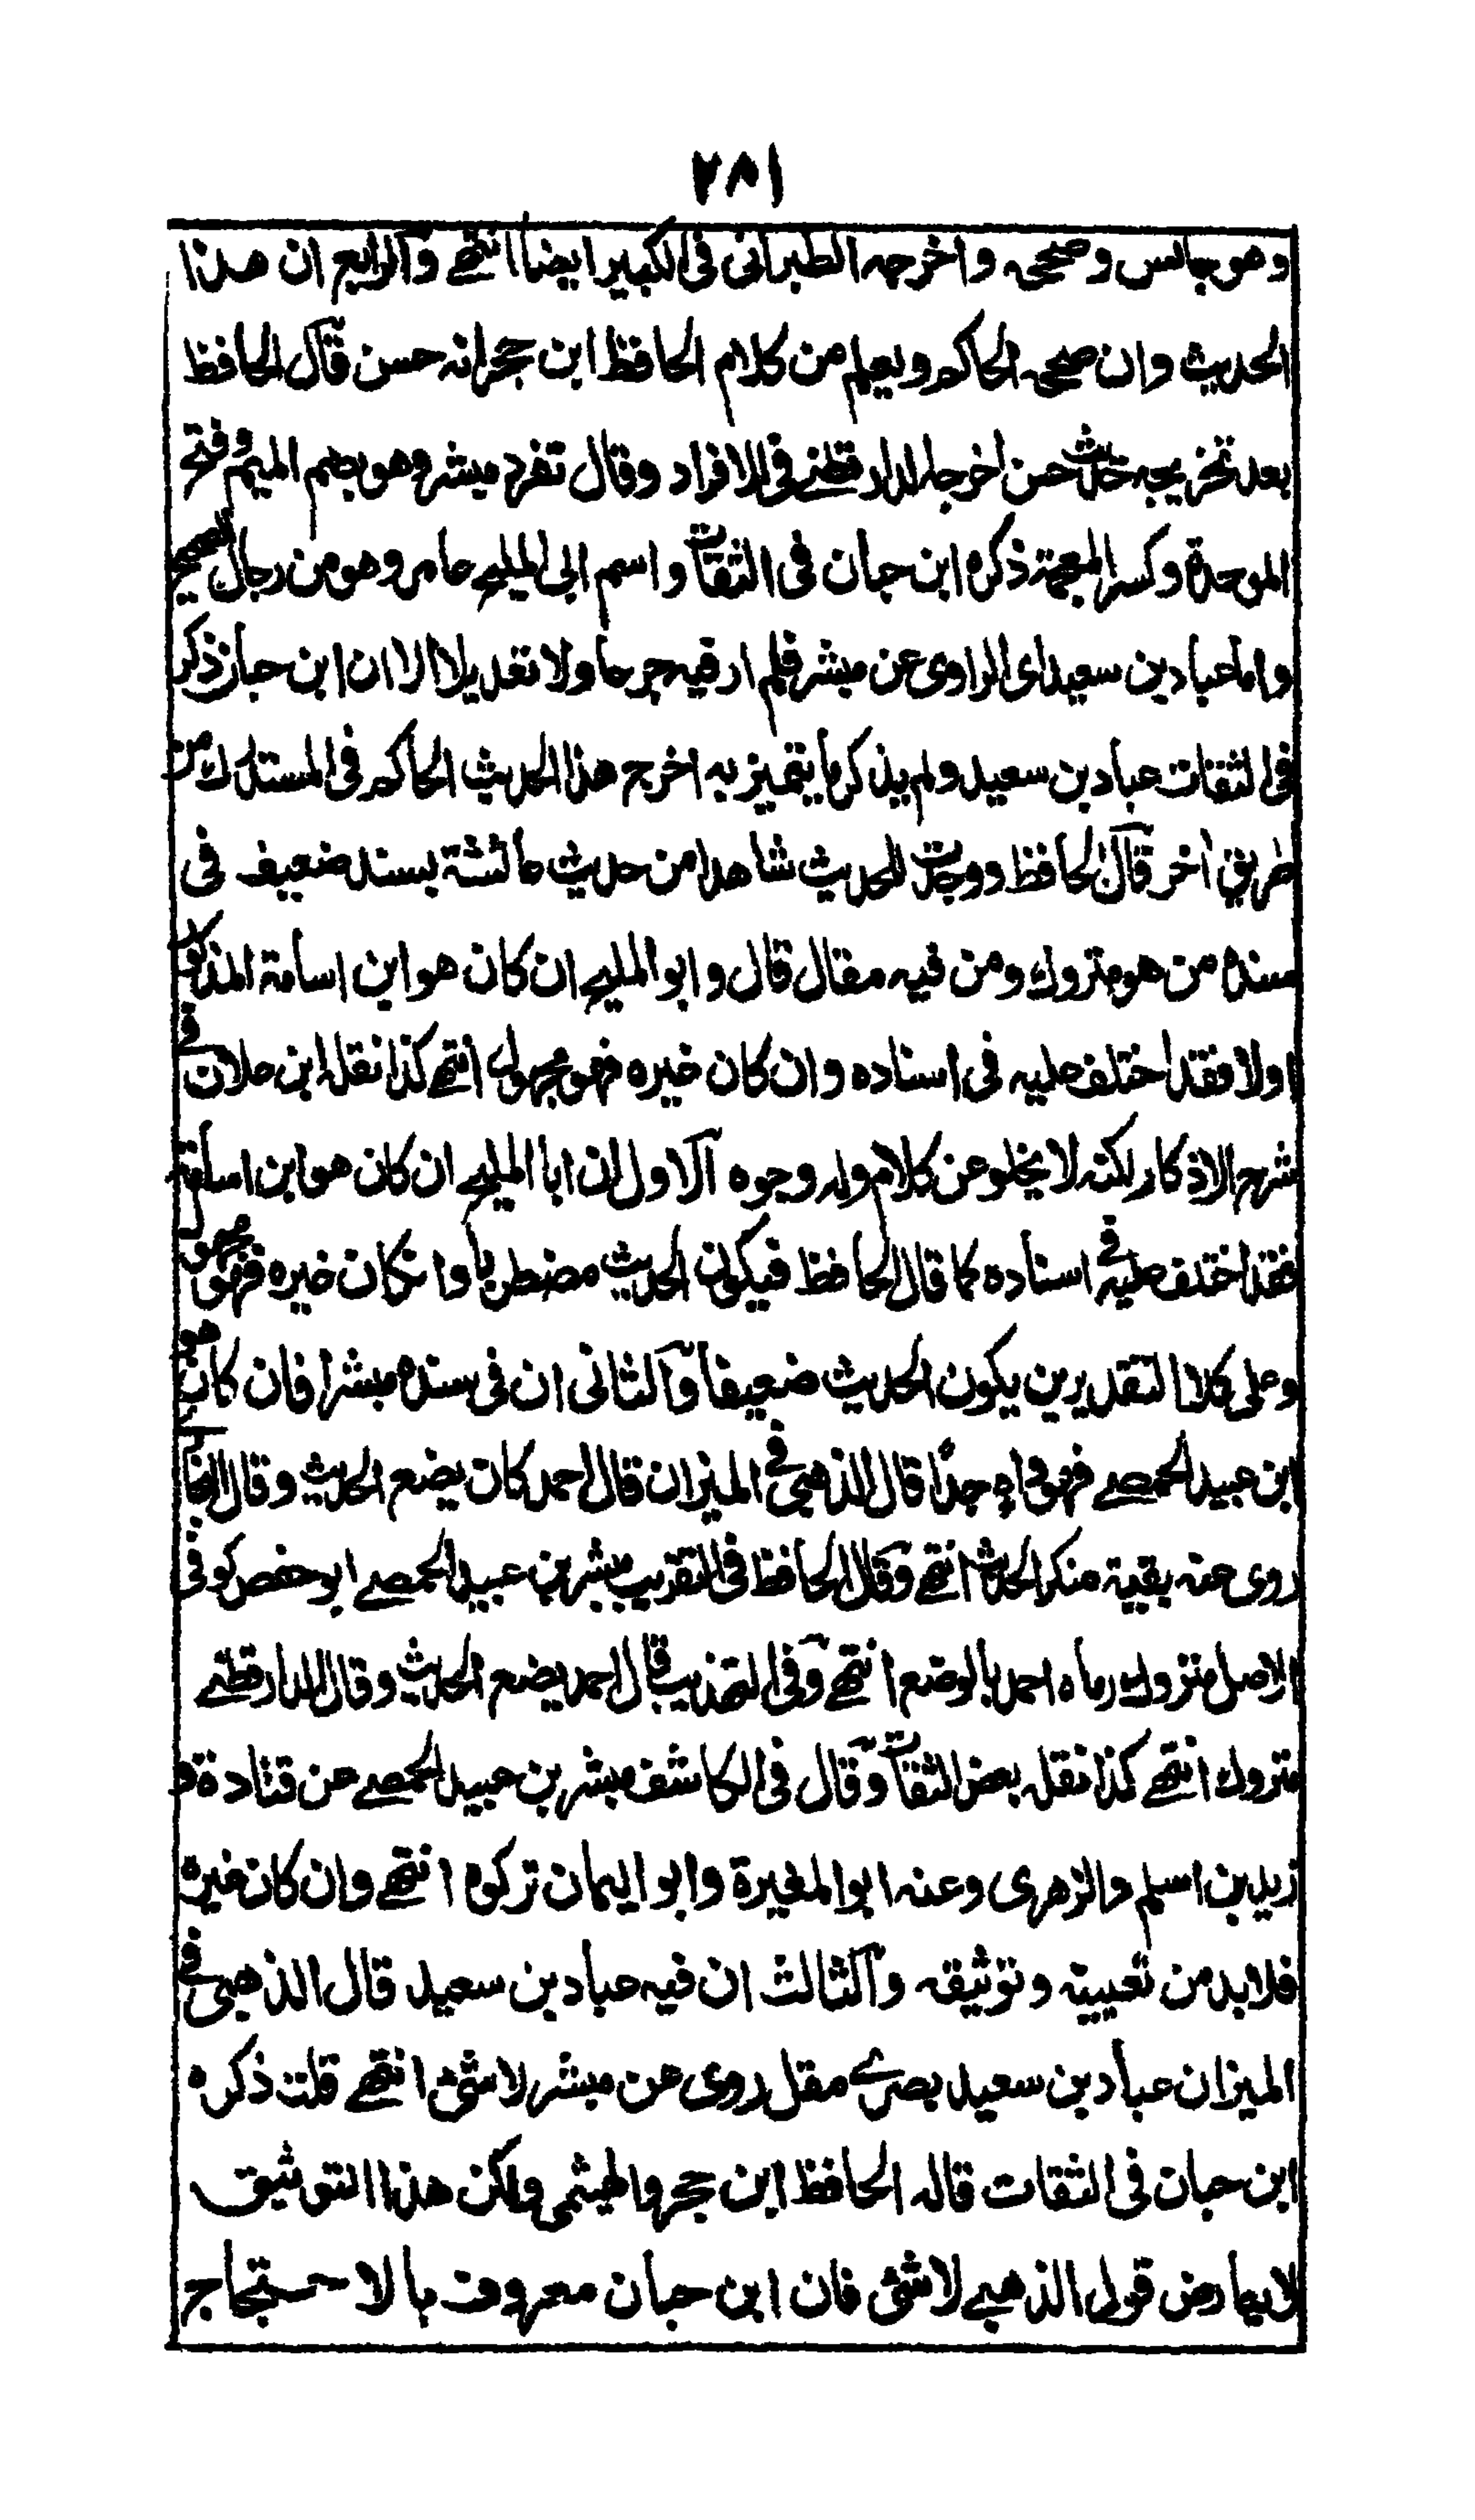 ٢٨١
وهو جالس وصححه واخرجه الطبرانى فى الكبير ايضا انتهى والرابع ان هذا
الحديث وان صححه الحاكم ويعلم من كلام الحافظ ابن حجر انه حسن قال الحافظ
بعد تخريجه حديث حسن اخرجه الدارقطنى فى الافراد وقال تفرد مبشر وهو بضم الميم وفتح
الموحدة وكسر المعجمة ذكره ابن حبان فى الثقات واسم ابى المليح عامر وهو من رجال الصحيح
واما عباد بن سعيد اى الراوى عن مبشر فلم ار فيه جرحا ولا تعديلا الا ان ابن حبان ذكر
فى الثقات عباد بن سعيد ولم يذكر ما يتميز به اخرج هذا الحديث الحاكم فى المستدرك من
طريق اخر قال الحافظ ووجدت للحديث شاهدا من حديث عائشة بسند ضعيف فى
سنده من هو متروك ومن فيه مقال قال وابو المليح ان كان هو ابن اسامة المذكور
اولا فقد اختلف عليه فى اسناده وان كان غيره فهو مجهول انتهى كذا نقله ابن علان فى
شرح الاذكار لكنه لا يخلو عن كلام وله وجوه الاول ان ابا المليح ان كان هو ابن اسامة
فقد اختلف عليه فى اسناده كما قال الحافظ فيكون الحديث مضطربا وان كان غيره فهو مجهول
وعلى كلا التقديرين يكون الحديث ضعيفا والثانى ان فى سنده مبشرا فان كان هو
ابن عبيد الحمصى فهو واه جدا قال الذهبى فى الميزان قال احمد كان يضع الحديث وقال البخارى
روى عنه بقية منكر الحديث انتهى وقال الحافظ فى التقريب مبشر بن عبيد الحمصى ابو حفص كوفى
الاصل متروك رماه احمد بالوضع انتهى وفى التهذيب قال احمد يضع الحديث وقال الدارقطنى
متروك انتهى كذا نقله بعض الثقات وقال فى الكاشف مبشر بن عبيد الحمصى عن قتادة و
زيد بن اسلم والزهرى وعنه ابو المغيرة وابو اليمان تركوه انتهى وان كان غيره
فلابد من تعيينه وتوثيقه والثالث ان فيه عباد بن سعيد قال الذهبى فى
الميزان عباد بن سعيد بصرى مقل روى عن مبشر لاشئ انتهى قلت ذكره
ابن حبان فى الثقات قاله الحافظ ابن حجر والهيثمى ولكن هذا التوثيق
لا يعارض قول الذهبى لاشئ فان ابن حبان معروف بالاحتجاج